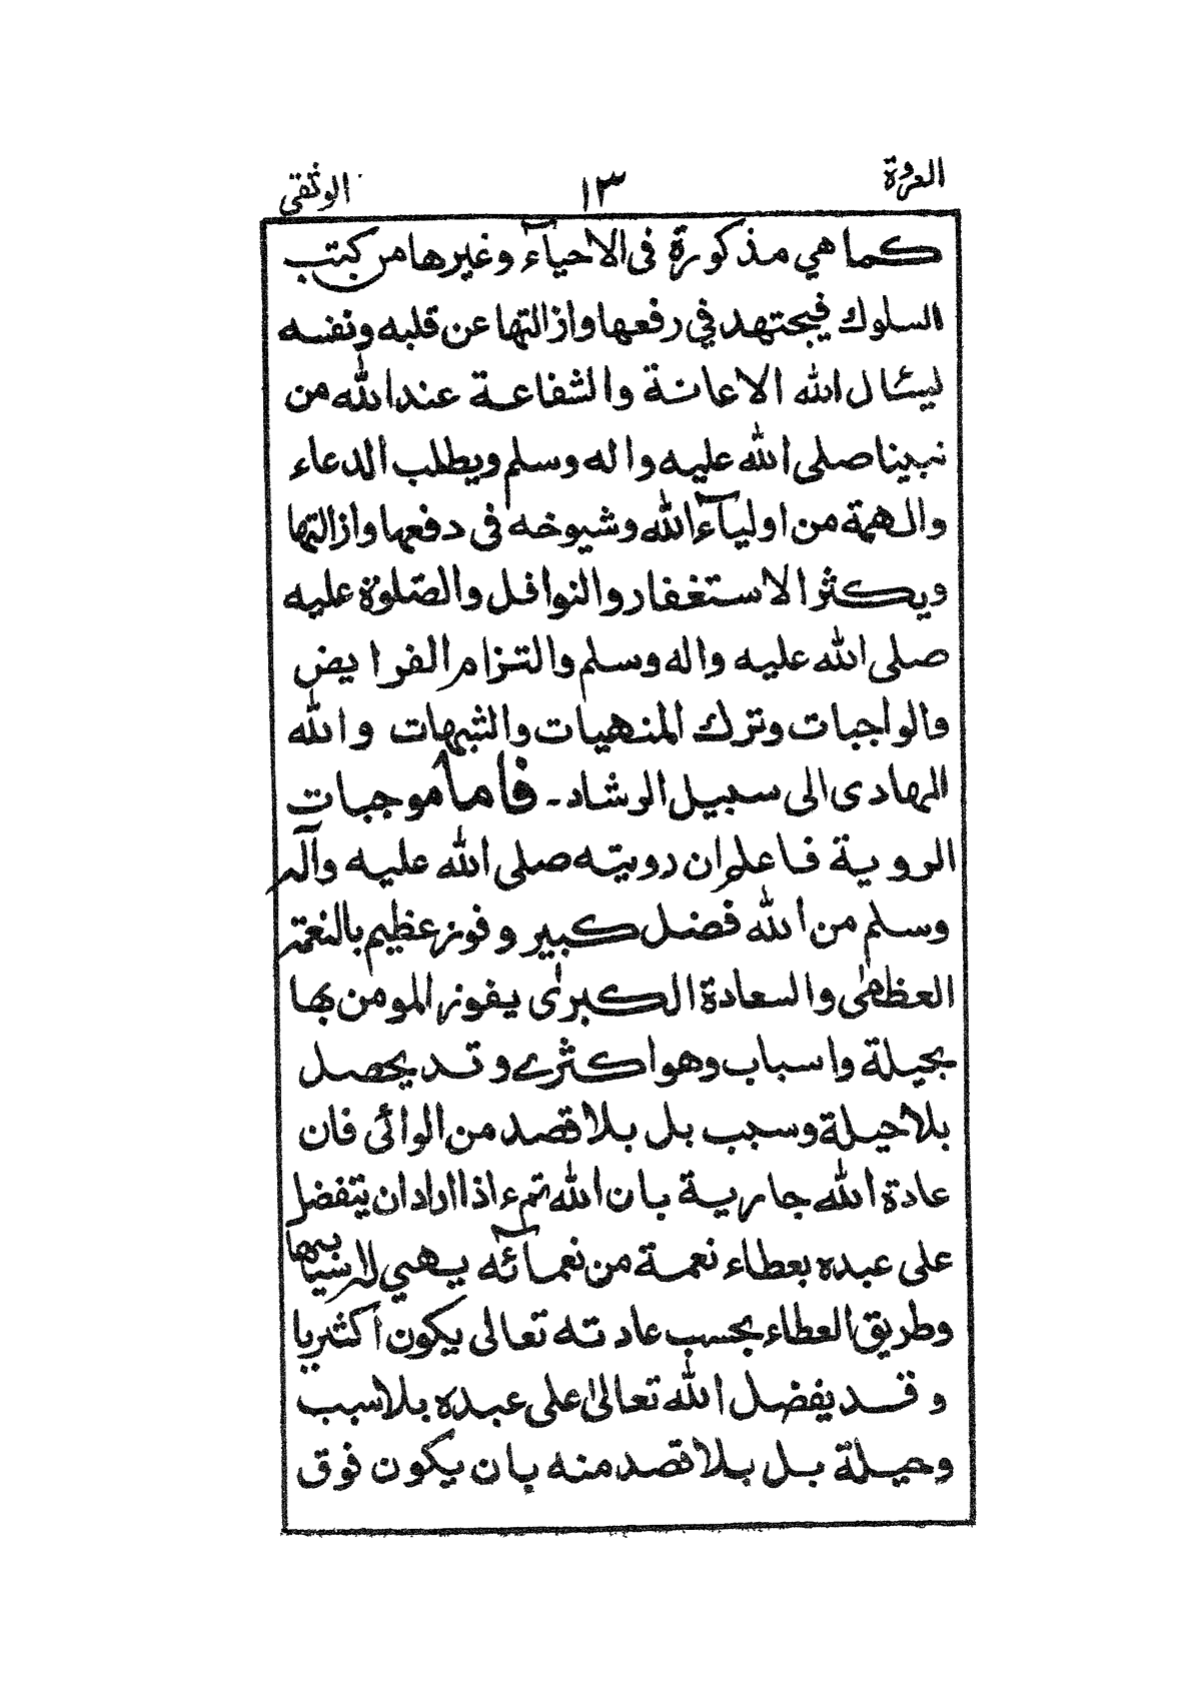 العروة ١٣ الوثقى
كما هي مذكورة فى الاحيآء وغيرها من كتب
السلوك فيجتهد في رفعها وازالتها عن قلبه ونفسه
ليسئال الله الاعانة والشفاعة عند الله من
نبينا صلى الله عليه واله وسلم ويطلب الدعاء
والهمة من اوليآء الله وشيوخه فى دفعها وازالتها
ويكثر الاستغفار والنوافل والصّلوة عليه
صلى الله عليه واله وسلم والتزام الفرايض
والواجبات وترك المنهيات والشبهات والله
الهادى الى سبيل الرشاد۔ فاما موجبات
الروية فاعلم ان رويته صلى الله عليه وآله
وسلم من الله فضل كبير وفوز عظيم بالنعمة
العظمٰى والسعادة الكبرٰى يفوز المومن بها
بحيلة واسباب وهو اكثرے وقد يحصل
بلا حيلة وسبب بل بلا قصد من الرائى فان
عادة الله جارية بان الله تع اذا اراد ان يتفضل
على عبده بعطاء نعمة من نعمآئه يهيي لاسبابها
وطريق العطاء بحسب عادته تعالى يكون اكثريا
وقد يفضل الله تعالىٰ على عبده بلا سبب
وحيلة بل بلا قصد منه بان يكون فوق